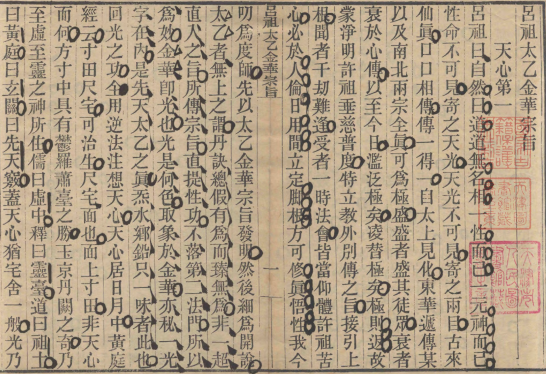 呂祖太乙金華宗旨
天心第一
呂祖曰自然曰道道無名相一性而已一元神而已
性命不可見寄之天光天光不可見寄之兩目古來
仙眞口口相傳傳一得一自太上見化東華遞傳某
以及南北兩宗全眞可爲極盛盛者盛其徒衆衰者
衰於心傳以至今日濫泛極矣凌替極矣極則返故
蒙淨明許祖垂慈普度特立教外別傳之旨接引上
根聞者千劫難逢受者一時法會皆當仰體許祖苦
心必於人倫日用間立定腳根方可修眞悟性我今
呂祖太乙金華宗旨
一
叨爲度師先以太乙金華宗旨發明然後細爲開說
太乙者無上之謂丹訣總假有爲而臻無爲非一超
直入之旨所傳宗旨直提性功不落第二法門所以
爲妙金華卽光也光是何色取象於金華亦秘一光
字在內是先天太乙之眞炁水鄉鉛只一味者此也
回光之功全用逆法注想天心天心居日月中黃庭
經云寸田尺宅可治生尺宅面也面上寸田非天心
而何方寸中具有鬱羅蕭臺之勝玉京丹闕之奇乃
至虛至靈之神所住儒曰虛中釋曰靈臺道曰祖土
曰黃庭曰玄關曰先天竅蓋天心猶宅舍一般光乃